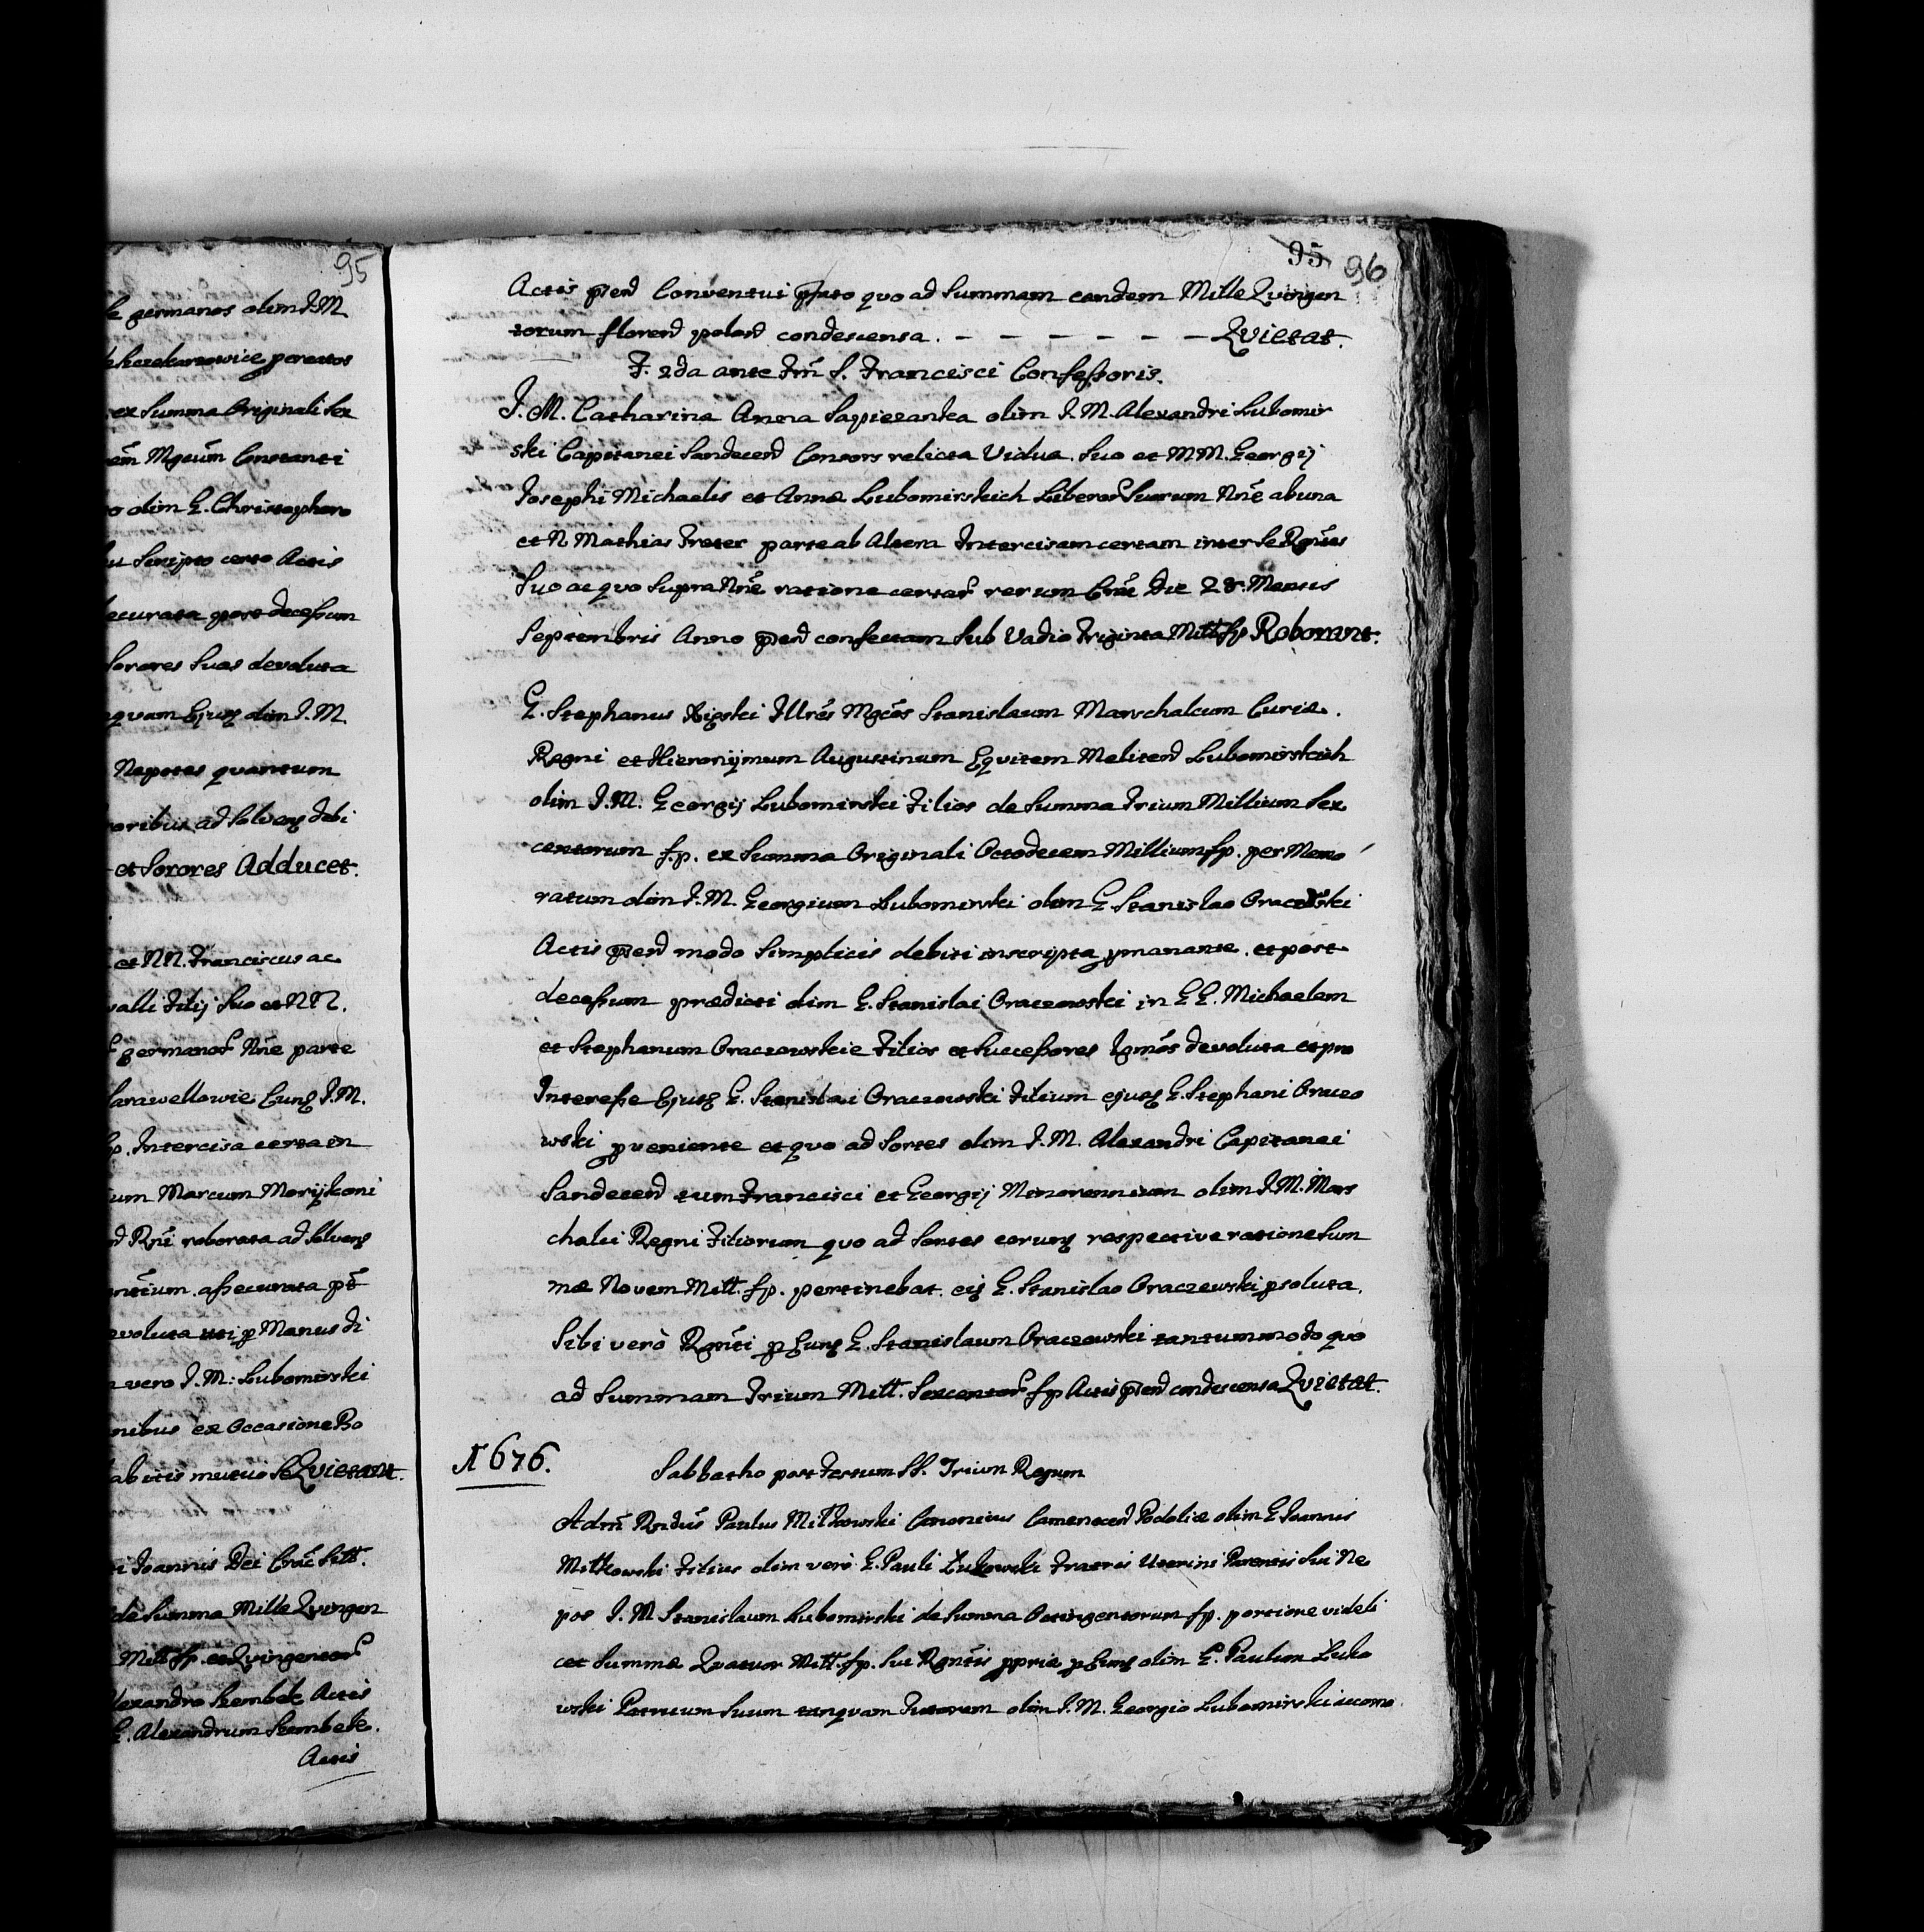 95
le germanos olim J.M.
ex Summa Originali Sex
em Mgcum Constanti
o olim G. Christophoro
u Scripto certo Actis
ecurata post decessum
Sorores Suas devoluta
olim J.M.
Nepotes quantum
oribus ad Solveng debi
et Sorores Adducet.
et NN. Franciscus ac
valli Filij Suo et NN.
germanor Nne parte
J.M.
p. Intercisa certa in
um Marcum Morijkoni
roborata ad Solveng
assecurata
evoluta uti p Manus di
vero J.M: Lubomirski
nibus ex Occasione Bo
abitis mutuo Se Qvietant.
i Joannis Dei Crac Sitt.
de Summa Mille Qvingen
Mill fp. et Qvingentor
lexandro Szembek Actis
G. Alexandrum Szembek.
Actis
95 96
Actis pnd Conventui pfato quo ad Summam eandem Mille Qvingen
torum florend polond condescensa. - - - - - - Qvietat.
F. 2da ante Fm S. Francisci Confessoris.
J.M. Catharina Anna Sapiezanka olim J.M. Alexandri Lubomir
ski Capitanei Sandecend Consors relicta Vidua. Suo et MM. Georgij
Josephi Michaelis et Annæ Lubomirskich Liberor Suorum Nne ab una
et N Mathias Freter parte ab Altera Intercisam certam inter Se Rgntes
Suo ac quo Supra Nne ratione certar rerum Crac Die 28. Mensis
Septembris Anno pnd confectam Sub Vadio Triginta Mill fp Roborant.
G. Stephanus Illres Mgcos Stanislaum Marschalcum Curiæ.
Regni et Hieronijmum Augustinum Eqvitem Melitend Lubomirskich
olim J.M. Georgij Lubomirski Filios de Summa Trium Millium Sex
centorum f.p. ex Summa Originali Octodecem Millium fp. per Memo
ratum olim J.M. Georgium Lubomirski olim G Stanislao Oraczewski
Actis pnd modo Simplicis debiti inscripta pmanante. et post
decessum prædicti olim G. Stanislai Oraczewski in GG. Michaelem
et Stephanum Oraczowskie Filios et Successores Igmos devoluta et pro
Interesse Ejusg G. Stanislai Oraczowski Filium ejusg G. Stephani Oraczo
wski pveniente et quo ad Sortes olim J.M. Alexandri Capitanei
Sandecend tum Francisci et Georgij Minorennium olim J.M. Mars
chalci Regni Filiorum quo ad Sortes eorung respective ratione Sum
mæ Novem Mill. fp. pertinebat. eij G. Stanislao Oraczewski psoluta.
Sibi verò Rgnti p Eung G. Stanislaum Oraczowski tantummodo quo
ad Summam Trium Mill. Sexcentor fp Actis pnd condescensa Qvietat.
N 676. Sabbatho post Festum SS. Trium Regum
Admr Rndus Paulus Mitkowski Canonicus Camenecend Podoliæ olim G Joannis
Mitkowski Filius olim verò G. Pauli Łukowski Fratris Uterini Parentis Sui Ne
pos J.M Stanislaum Lubomirski de Summa Octingentorum fp. portione videli
cet Summæ Qvatuor Mill. fp. Sui Rgntis ppriæ p Eung olim G. Paulum Luko
wski Patruum Suum tanqvam Tutorem olim J.M. Georgio Lubomirski accomo